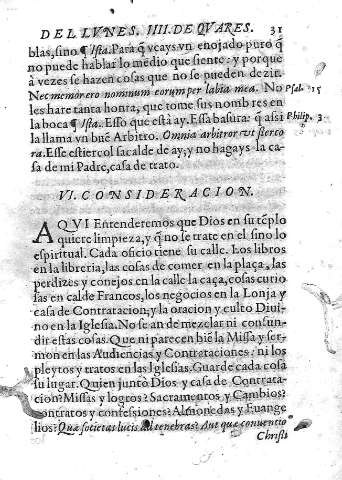 DEL LVNES. IIII. DE QVARES. 31
blas, sino ¶ Ista. Para q̃ veays vn enojado puro q̃
no puede hablar lo medio que siente: y porque
à vezes se hazen cosas que no se pueden dezir.
Nec memor ero nominum eorum per labia mea. No Psal. 15
les hare tanta honra, que tome sus nombres en
la boca ¶ Ista. Esso que està ay. Essa basura: q̃ assi Philip. 3
la llama vn buẽ Arbitro. Omnia arbitror vt stercora. Esse estiercol sacalde de ay; y no hagays la casa
de mi Padre, casa de trato.
VI. CONSIDERACION.
AQVI Entenderemos que Dios en su tẽplo
quiere limpieza, y q̃ no se trate en el sino lo
espiritual. Cada oficio tiene su calle. Los libros
en la libreria, las cosas de comer en la plaça, las
perdizes y conejos en la calle la caça, cosas curiosas
en cal de Francos, los negocios en la Lonja y
casa de Contratacion; y la oracion y culto Diuino
en la Iglesia. No se an de mezclar ni confundir
estas cosas. Que ni parecen biẽ la Missa y sermon
en las Audiencias y Contrataciones: ni los
pleytos y tratos en las Iglesias. Guarde cada cosa
su lugar. Quien juntò Dios y casa de Contratacion?
Missas y logros? Sacramentos y Cambios?
Contratos y confessiones? Almonedas y Euangelios?
Quæ societas lucis ad tenebras? Aut quæ conuentio
Christi